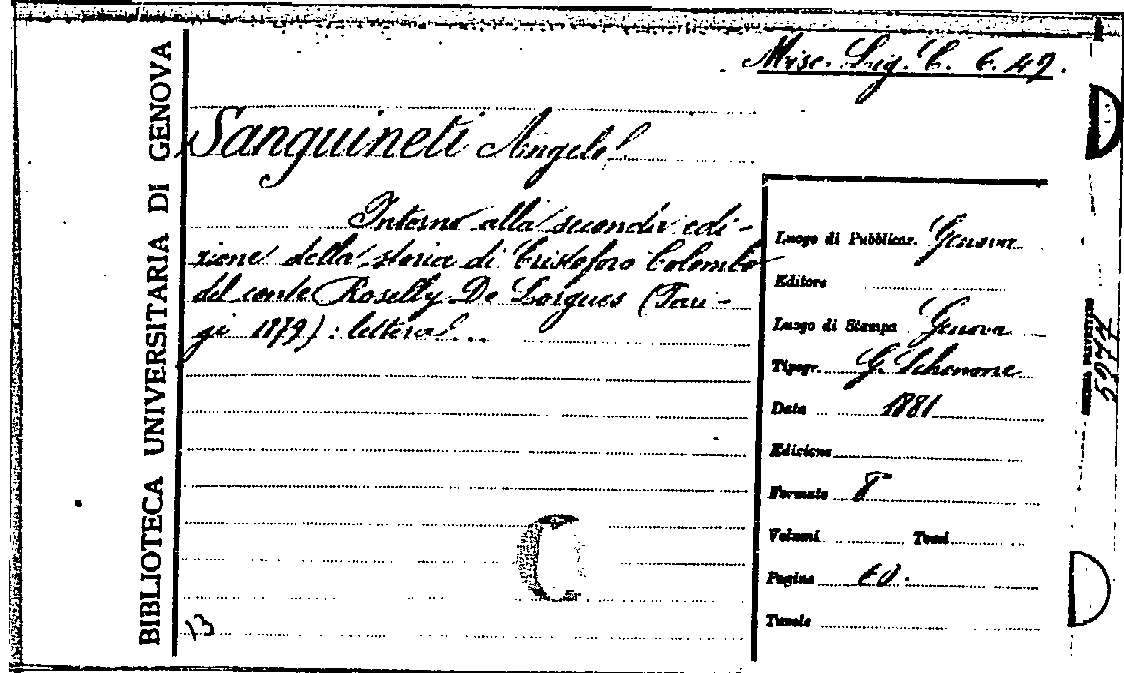 Misc. Lig. C. 6. 49.
BIBLIOTECA UNIVERSITARIA DI GENOVA
Sanguineti Angelo
Intorno alla seconda edi-
zione della storia di Cristoforo Colombo
del conte Roselly De Lorgues (Pari-
gi 1879): lettera...
Luogo di Pubblicaz. Genova
Editore
Luogo di Stampa Genova
Tipogr. G. Schenone
Data 1881
Edizione
Formato 8
Volumi Tomi
Pagine 60.
Tavole
13